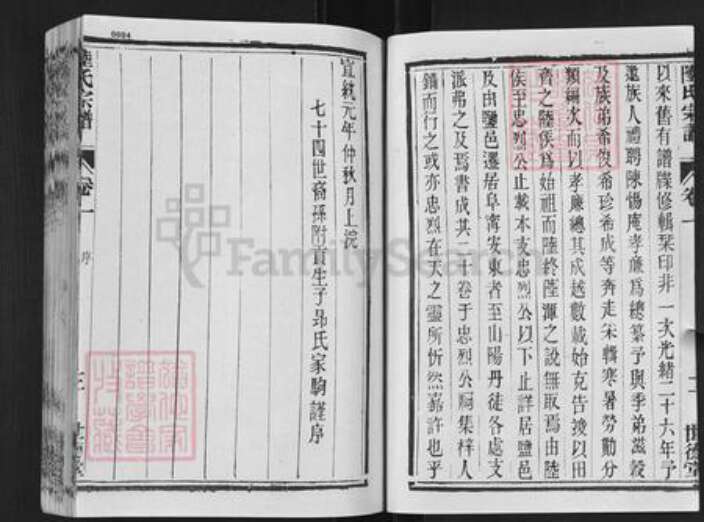 陸氏宗譜
卷一
二
世德堂
以來舊有譜牒修輯棗印非一次光緒二十六年予
邀族人禮聘陳惕庵孝廉爲總纂予與季弟滋榖
及族弟希俊希珍希成等奔走采輯寒暑勞勩分
類編次而以孝廉總其成越數載始克告竣以田
齊之陸侯爲始祖而陸終陸渾之說無取焉由陸
侯至忠烈公止載本支忠烈公以下止詳居鹽邑
及由鹽邑遷居阜寧安東者至山陽丹徒各處支
派弗之及焉書成共二十卷于忠烈公祠集梓人
鐫而行之或亦忠烈在天之靈所忻然嘉許也乎
宣統元年仲秋月上浣
七十四世裔孫附貢生子昻氏家駒謹序
陸氏宗譜
卷一
序
三
0004
FamilySearch